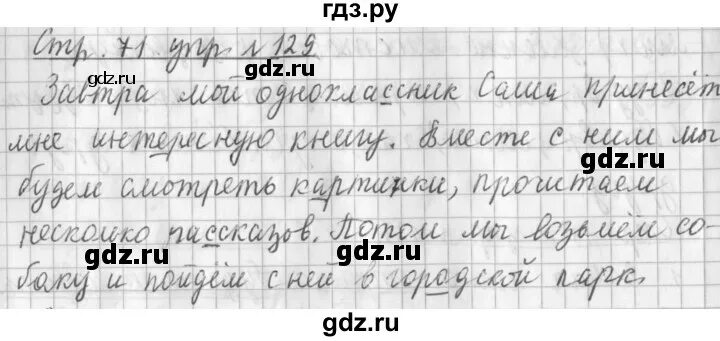 гдз.ру
Стр. 71 упр. № 129
Завтра мой одноклассник Саша принесёт
мне интересную книгу. Вместе с ним мы
будем смотреть картинки, прочитаем
несколко рассказов. Потом мы возьмём со-
баку и пойдём с ней в городской парк.
gdz.ru
gdz.ru
gdz.ru
gdz.ru
gdz.ru
gdz.ru
gdz.ru
gdz.ru
gdz.ru
gdz.ru